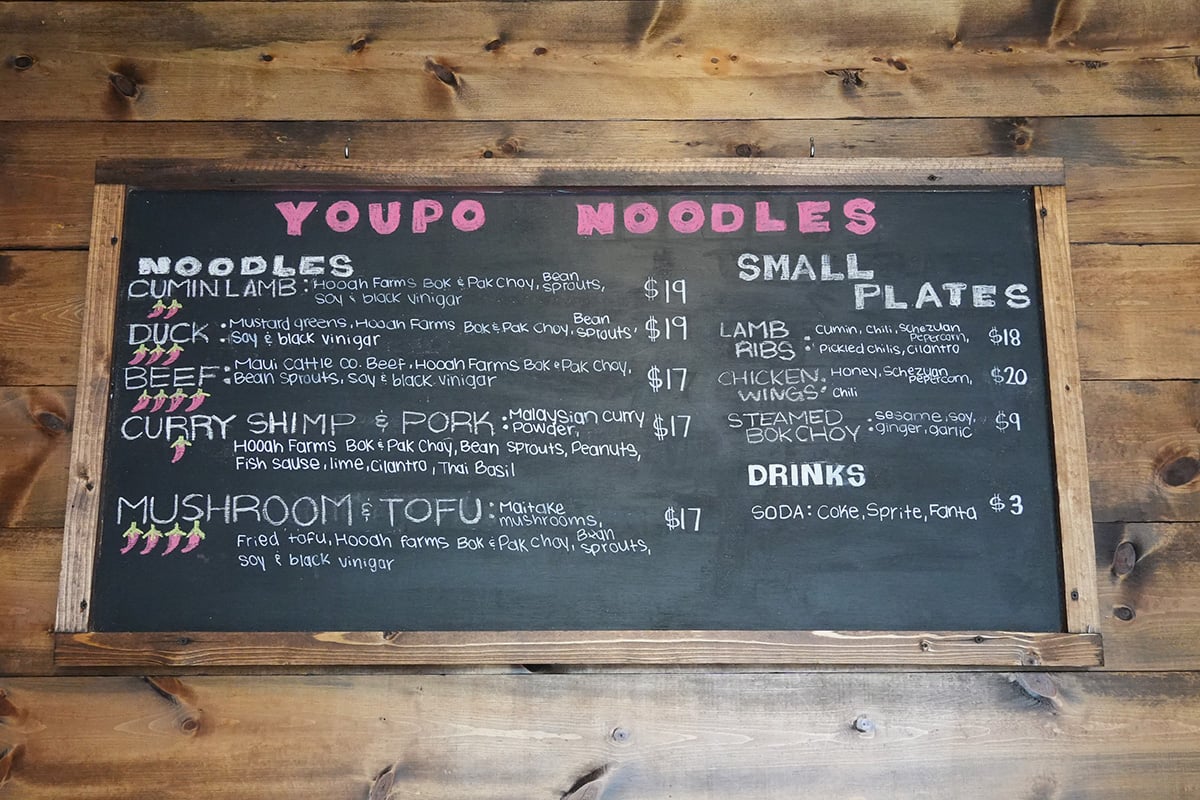 YOUPO NOODLES
NOODLES
CUMIN LAMB: Hooah Farms Bok & Pak Choy, Bean sprouts, $19
Soy & black vinigar
DUCK: Mustard greens, Hooah Farms Bok & Pak Choy, Bean sprouts, $19
Soy & black vinigar
BEEF: Maui Cattle Co. Beef, Hooah Farms Bok & Pak Choy, $17
Bean sprouts, Soy & black vinigar
CURRY SHIMP & PORK: Malaysian curry powder, $17
Hooah Farms Bok & Pak Choy, Bean sprouts, Peanuts,
Fish sause, lime, cilantro, Thai Basil
MUSHROOM & TOFU: Maitake mushrooms, $17
Fried tofu, Hooah farms Bok & Pak choy, Bean sprouts,
soy & black vinigar
SMALL
PLATES
LAMB RIBS: Cumin, chili, Schezuan Pepercorn, $18
Pickled chilis, cilantro
CHICKEN WINGS: Honey, Schezuan Pepercorn, $20
Chili
STEAMED BOK CHOY: sesame, soy, $9
ginger, garlic
DRINKS
SODA: Coke, Sprite, Fanta $3